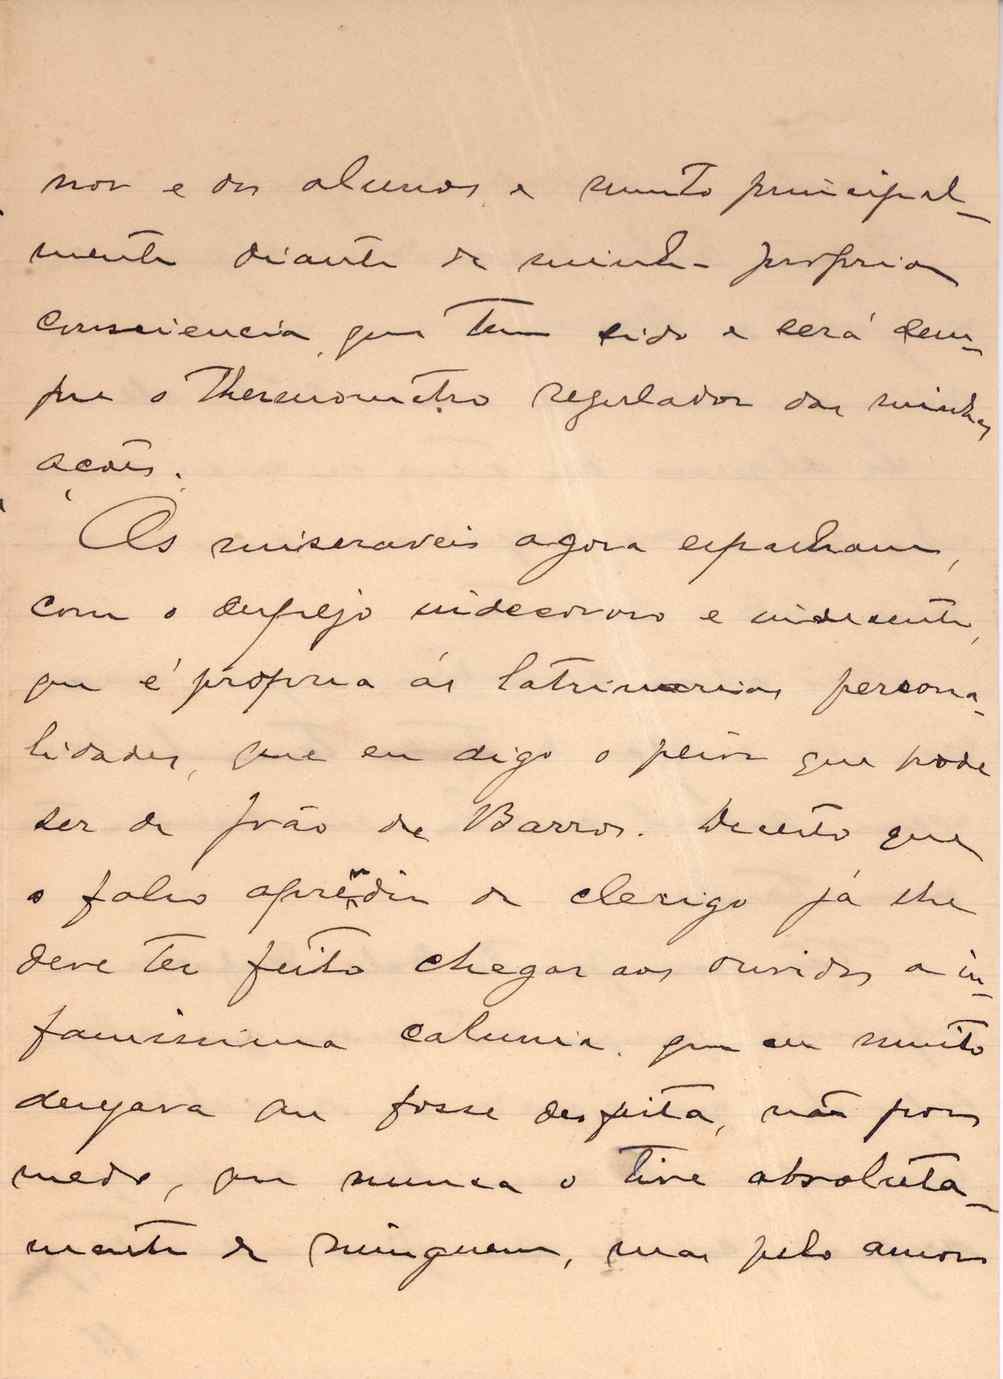 nor e dos alunos, e muito principal-
mente diante da minha propria
consciencia, que tem sido e será sem-
pre o thermometro regulador das minhas
ações.
Os miseraveis agora espalham,
com o despejo indecoroso e indecente,
que é propria ás latrinarias persona-
lidades, que eu digo o peior que pode
ser de João de Barros. Decerto que
o falso aprendiz de clerigo já lhe
deve ter feito chegar aos ouvidos a in-
famissima calunia, que eu muito
desejava que fosse desfeita, não por
medo, que nunca o tive absoluta-
mente de ninguem, mas pelo amor